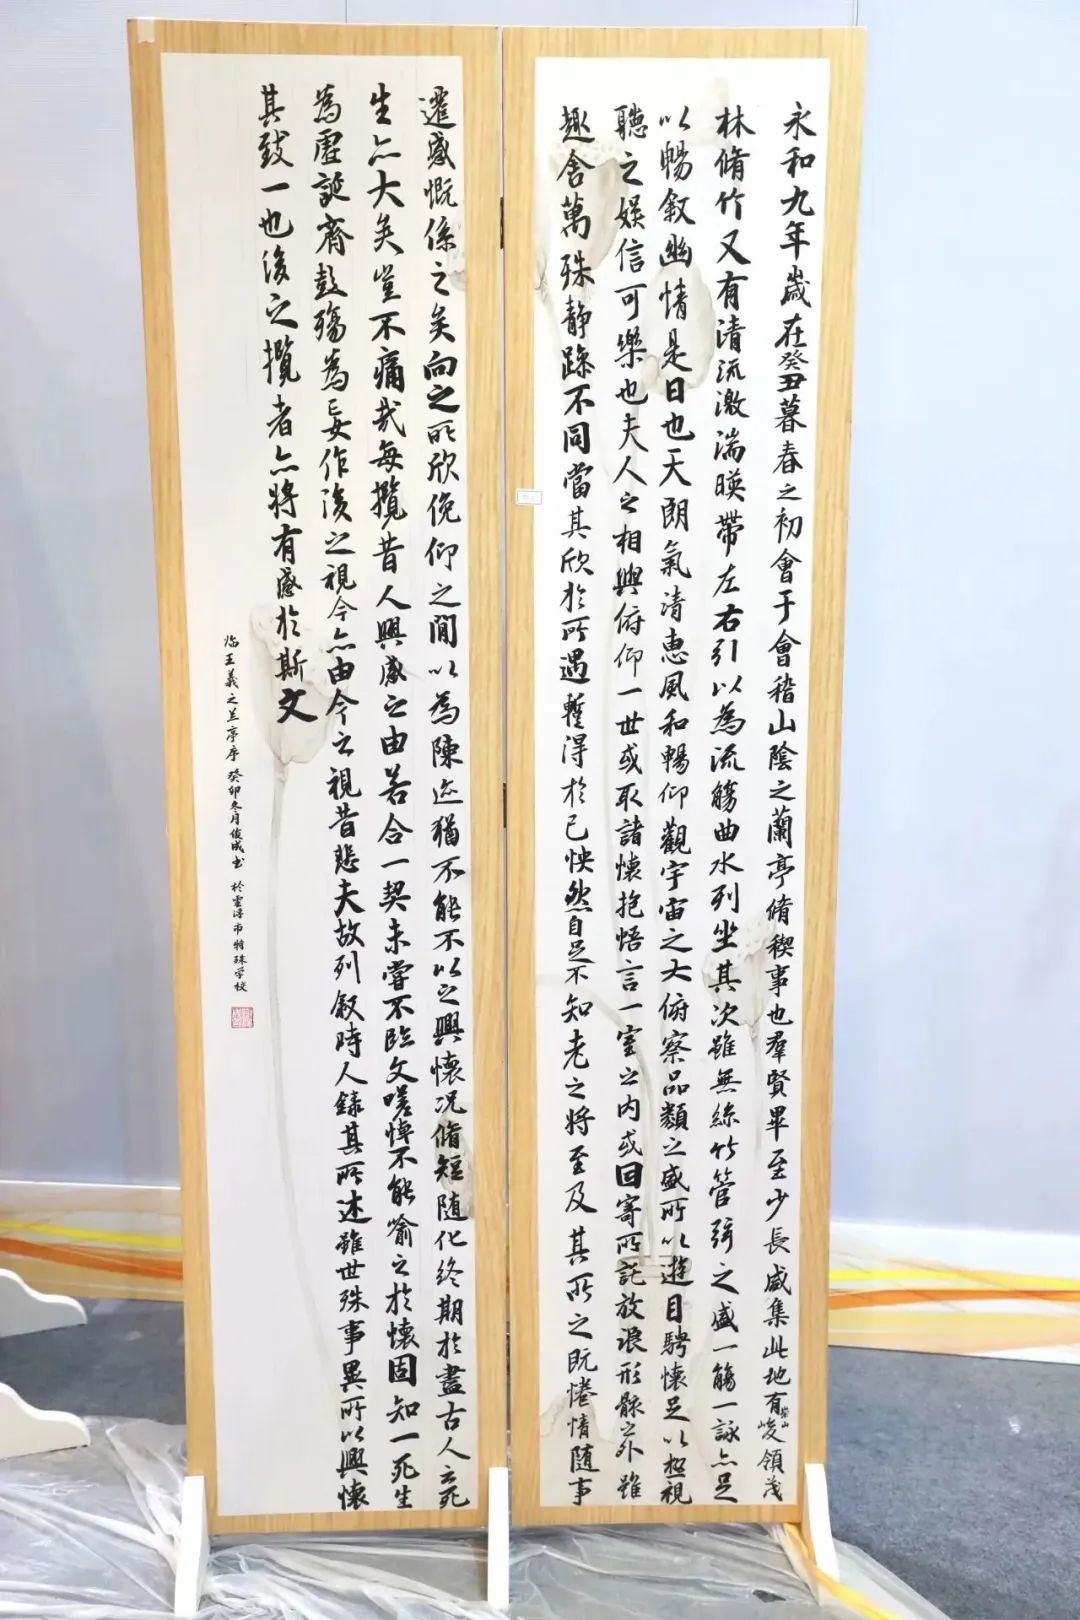 永和九年歲在癸丑暮春之初會于會稽山陰之蘭亭脩稧事也羣賢畢至少長咸集此地有崇山峻領茂
林脩竹又有清流激湍暎帶左右引以為流觴曲水列坐其次雖無絲竹管弦之盛一觴一詠亦足
以暢叙幽情是日也天朗氣清惠風和暢仰觀宇宙之大俯察品類之盛所以遊目騁懷足以極視
聽之娛信可樂也夫人之相與俯仰一世或取諸懷抱悟言一室之內或因寄所託放浪形骸之外雖
趣舍萬殊静躁不同當其欣於所遇蹔得於己怏然自足不知老之将至及其所之既惓情随事
遷感慨係之矣向之所欣俛仰之閒以為陳迹猶不能不以之興懷况脩短隨化終期於盡古人云死
生亦大矣豈不痛哉每攬昔人興感之由若合一契未嘗不臨文嗟悼不能喻之於懷固知一死生
為虛誕齊彭殤為妄作後之視今亦由今之視昔悲夫故列叙時人録其所述雖世殊事異所以興懷
其致一也後之攬者亦將有感於斯文
临王羲之兰亭序 癸卯冬月俊成书 於 市特殊学校